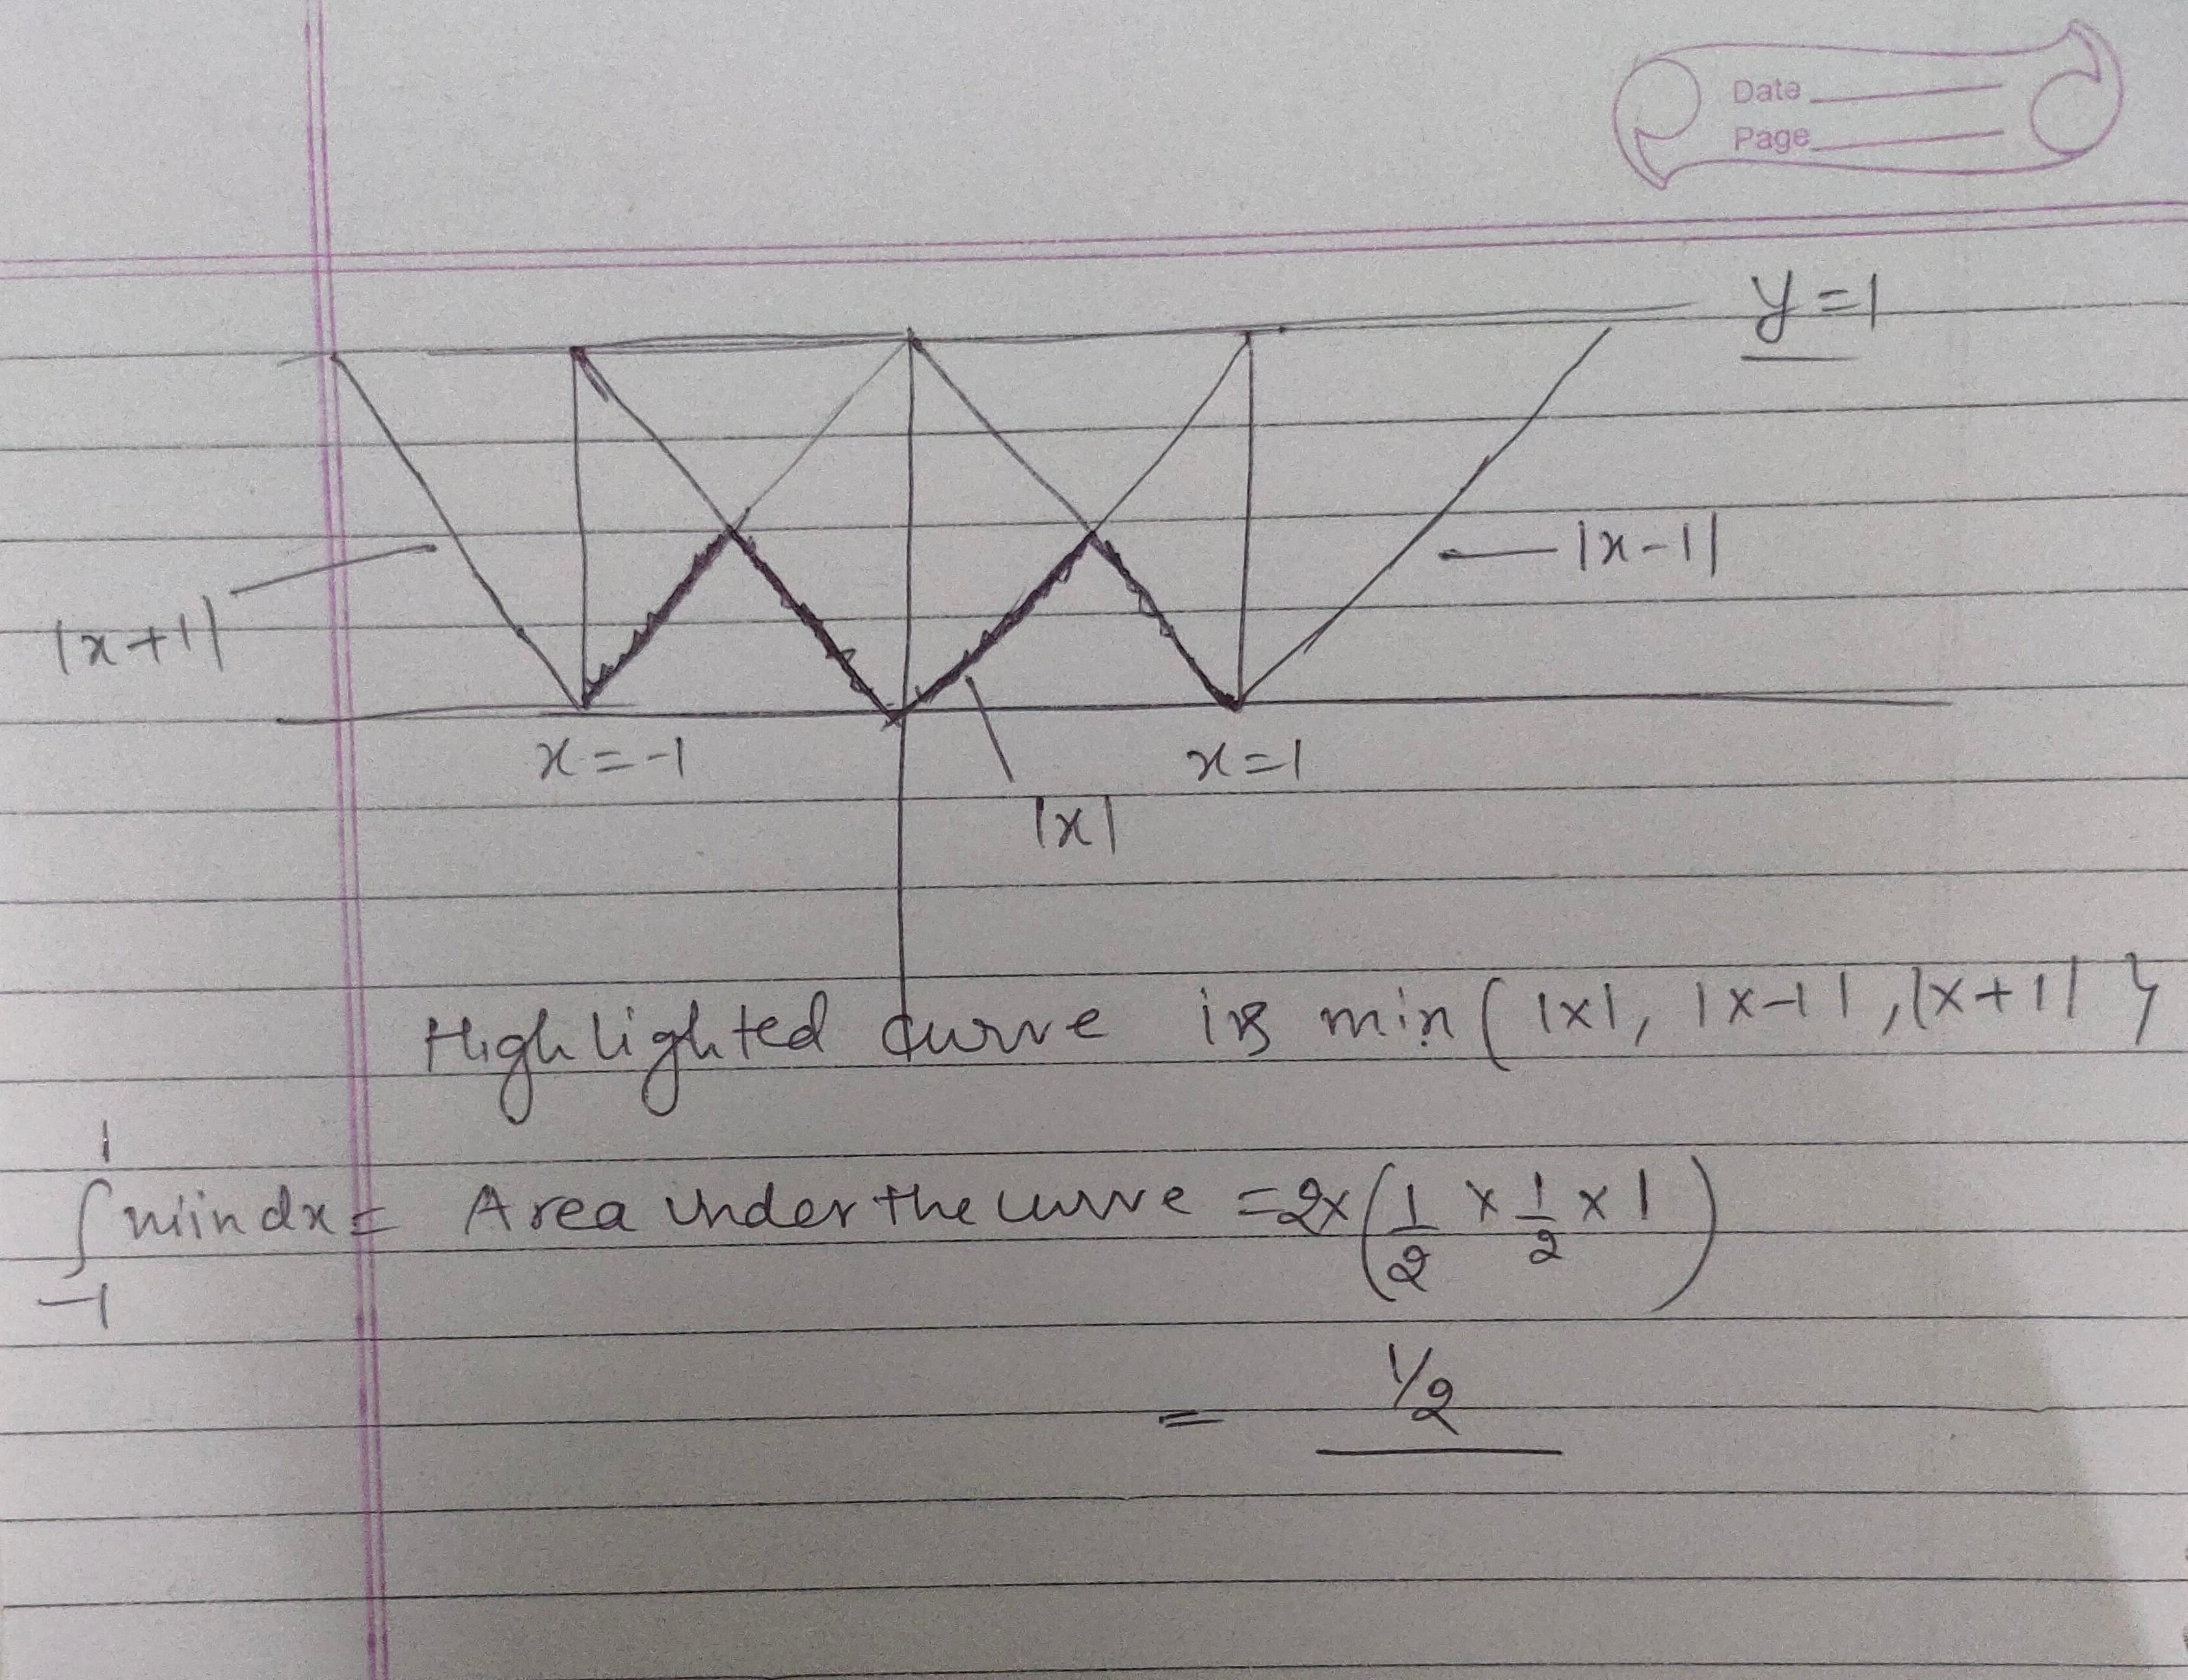 Date
Page
y=1
|x-1|
|x+1|
x=-1
x=1
|x|
Highlighted curve is min { |x|, |x-1|, |x+1| }
∫₋₁¹ min dx = Area under the curve = 2x(1/2 x 1/2 x 1)
= 1/2